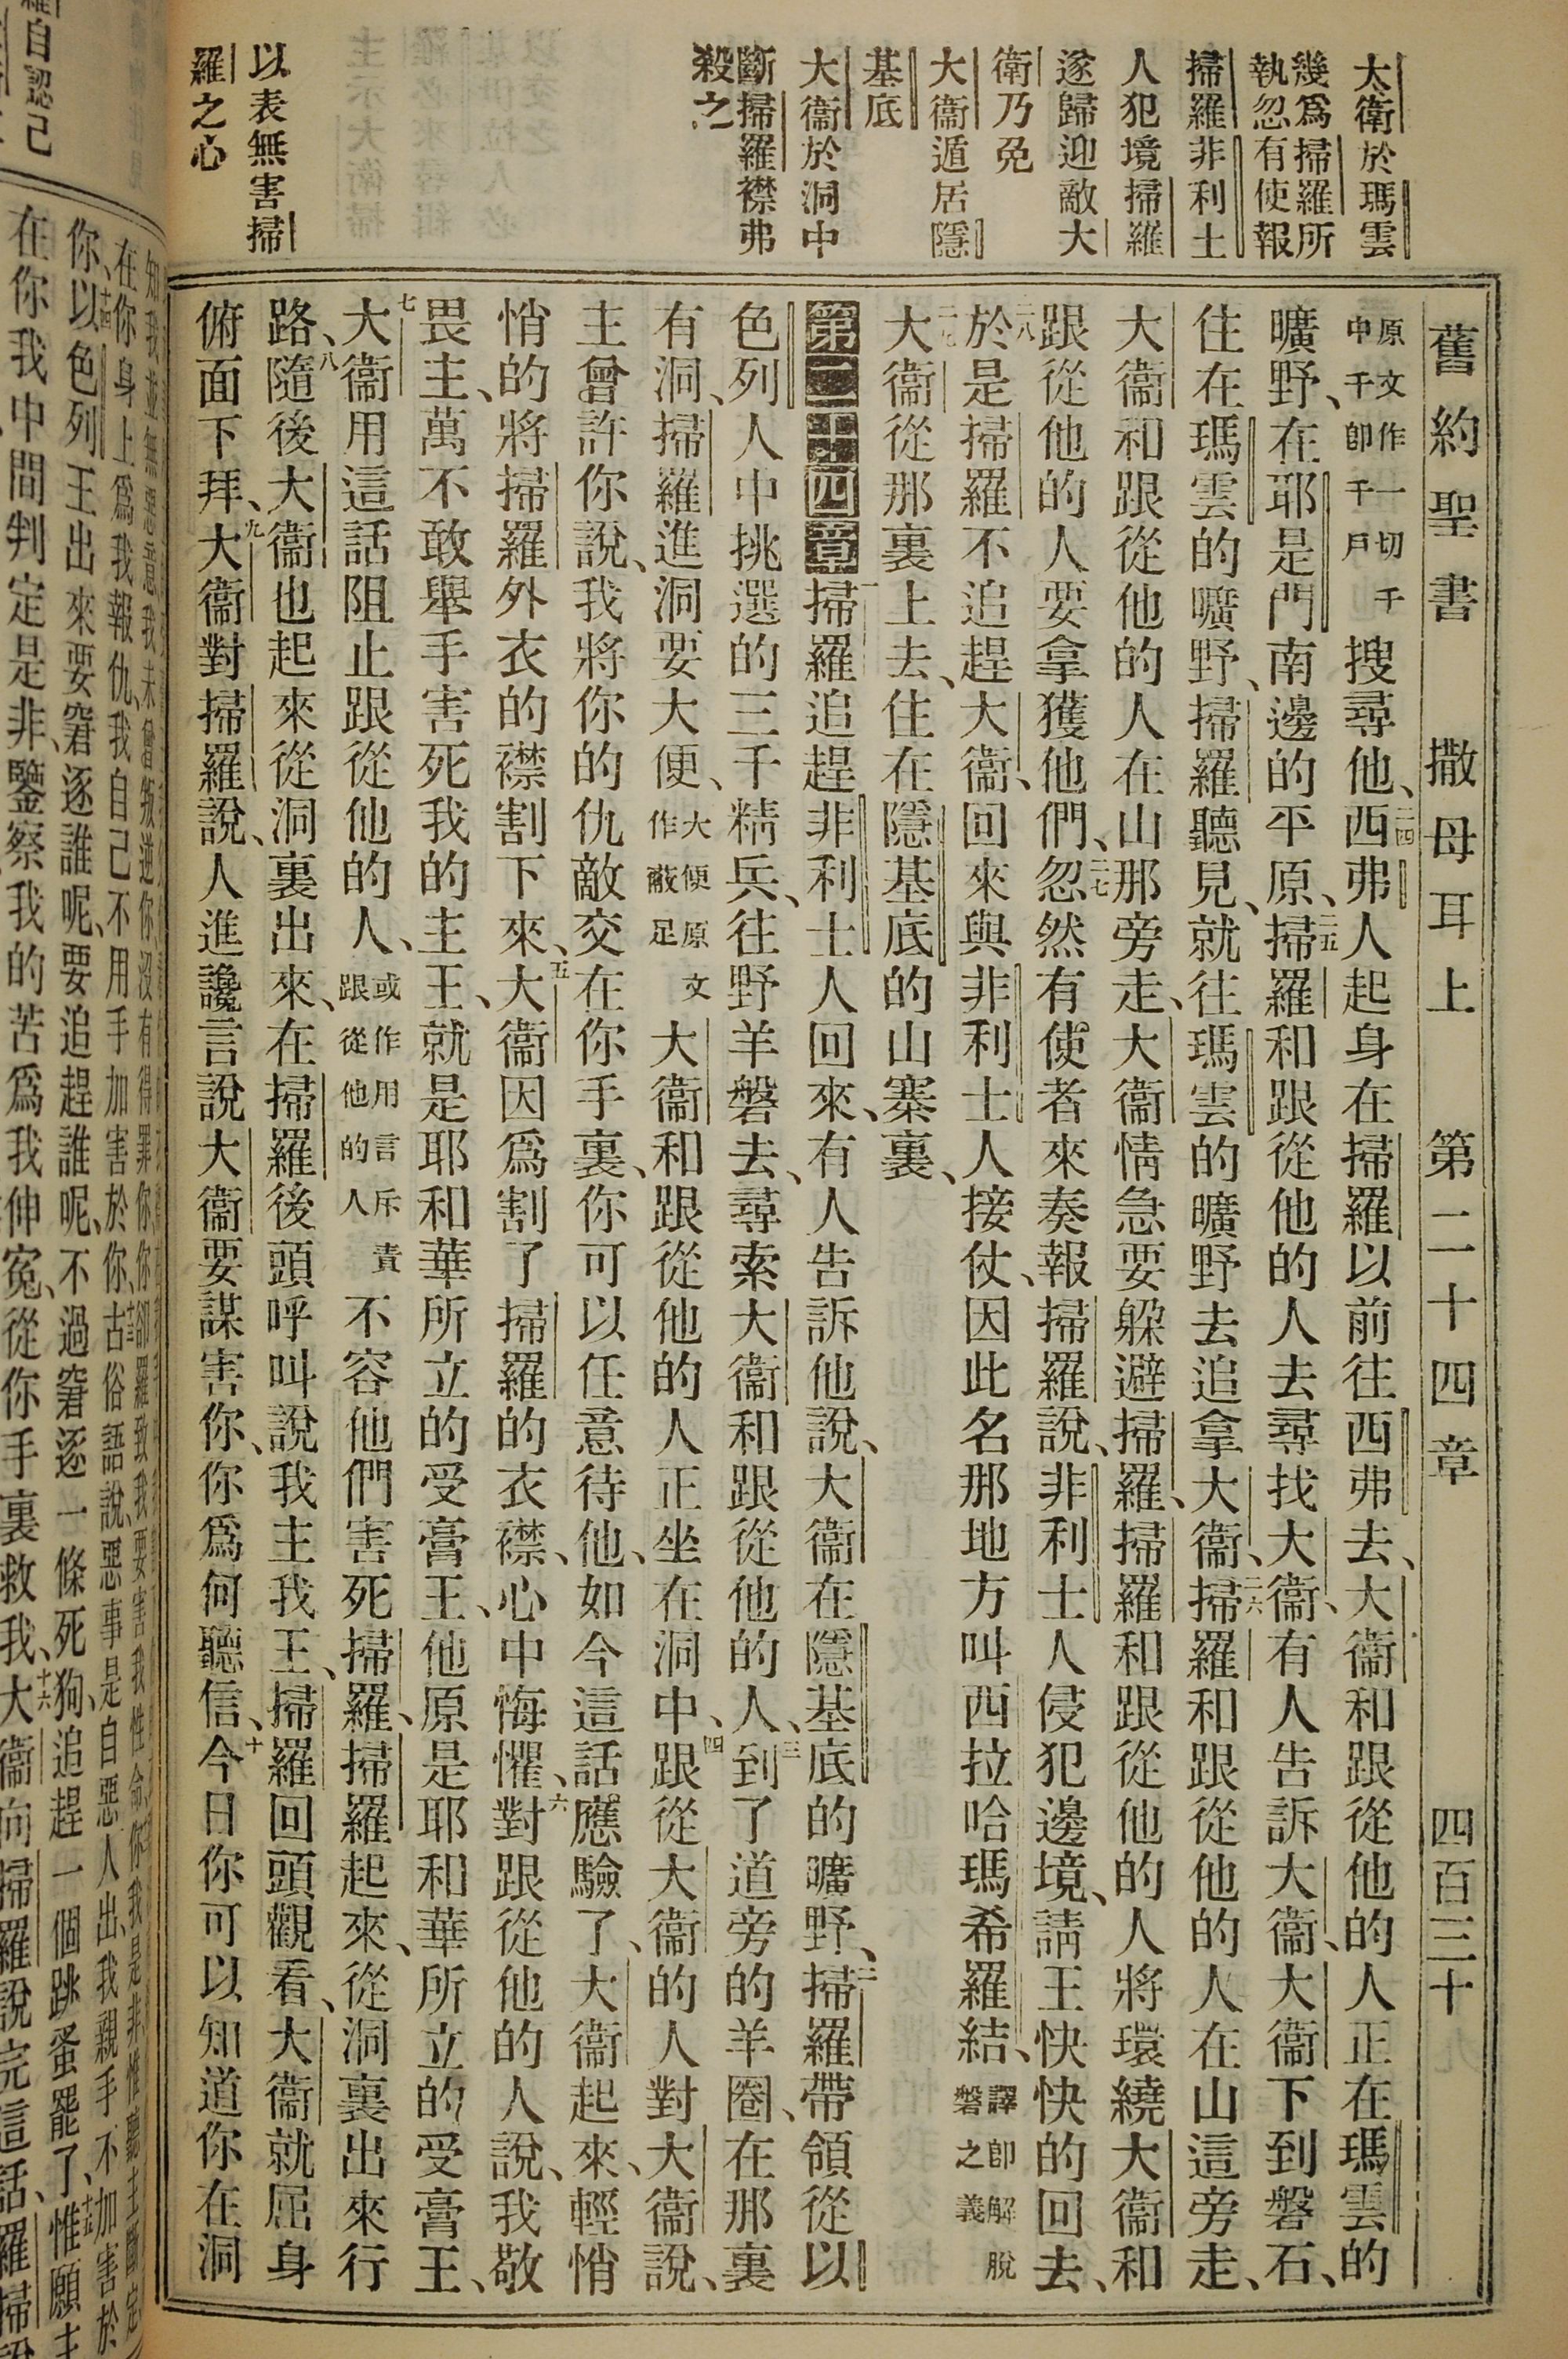 太衛於瑪雲
幾爲掃羅所
執忽有使報
掃羅非利士
人犯境掃羅
遂歸迎敵大
衛乃免
大衞遁居隱
基底
大衞於洞中
斷掃羅襟弗
殺之
以表無害掃
羅之心
舊約聖書 撒母耳上 第二十四章 四百三十九
原文作一切千
中千卽千戶
搜尋他、二四西弗人起身在掃羅以前往西弗去、大衞和跟從他的人正在瑪雲的
曠野、在耶是門南邊的平原、二五掃羅和跟從他的人去尋找大衞、有人告訴大衞、大衞下到磐石、
住在瑪雲的曠野、掃羅聽見、就往瑪雲的曠野去追拿大衞、二六掃羅和跟從他的人在山這旁走、
大衞和跟從他的人在山那旁走、大衞情急要躱避掃羅、掃羅和跟從他的人將環繞大衞和
跟從他的人要拿獲他們、二七忽然有使者來奏報掃羅說、非利士人侵犯邊境、請王快快的回去、
二八於是掃羅不追趕大衞、回來與非利士人接仗、因此名那地方叫西拉哈瑪希羅結、譯卽解脫磐之義
二九大衞從那裏上去、住在隱基底的山寨裏、
第二十四章 一掃羅追趕非利士人回來、有人告訴他說、大衞在隱基底的曠野、二掃羅帶領從以
色列人中挑選的三千精兵、往野羊磐去、尋索大衞和跟從他的人、三到了道旁的羊圈、在那裏
有洞、掃羅進洞要大便、大便原文作蔽足 大衞和跟從他的人正坐在洞中、四跟從大衞的人對大衞說、
主曾許你說、我將你的仇敵交在你手裏、你可以任意待他、如今這話應驗了、大衞起來、輕悄
悄的將掃羅外衣的襟割下來、五大衞因爲割了掃羅的衣襟、心中悔懼、六對跟從他的人說、我敬
畏主、萬不敢舉手害死我的主王、就是耶和華所立的受膏王、他原是耶和華所立的受膏王、
七大衞用這話阻止跟從他的人、或作用言斥責跟從他的人 不容他們害死掃羅、掃羅起來、從洞裏出來行
路、八隨後大衞也起來從洞裏出來、在掃羅後頭呼叫說我主我王、掃羅回頭觀看、大衞就屈身
俯面下拜、九大衞對掃羅說、人進讒言說大衞要謀害你、你爲何聽信、十今日你可以知道你在洞
羅自認己
在你身上爲我報仇、我自己不用手加害於你、古俗語說、惡事是自惡人出、我親手不加害於
你、以色列王出來要窘逐誰呢、要追趕誰呢、不過窘逐一條死狗、追趕一個跳蚤罷了、惟願主
在你我中間判定是非、鑒察我的苦爲我伸冤、從你手裏救我、十六大衞向掃羅說完這話、